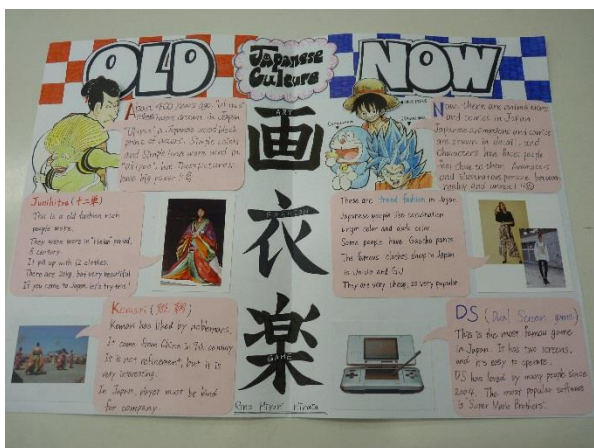 OLD
Japanese
Culture
NOW
About 400 years ago, "ukiyoe"
were drawn in Japan.
"Ukiyoe" is Japanese wood block
print of actors. Simple colors
and simple lines were used in
"ukiyoe", but these pictures
have big power!!
ART
画
ONE PIECE
Doraemon
Now, there are animations
and comics in Japan.
Japanese animations and comics
are drawn in detail, and
characters have faces people
feel close to them. Animations
and
between
reality and unreal!
Junihitoe (十二単)
This is a old fashion rich
people wore.
They were worn in "Heian" period,
8 century.
It piled up with 12 clothes.
There are 20kg, but very beautiful
If you come to Japan, let's try this!
FASHION
衣
These are trend fashion in Japan.
Japanese people like combination
bright color and dark color.
Some people have Gaucho pants.
The famous clothes shop in Japan
is Uniqlo and GU.
They are very cheap, so very popular.
Kemari (蹴鞠)
Kemari has liked by noblemans.
It came from China in 7th century
It is not refinement, but it is
very interesting.
In Japan, player must be kind
for company.
楽
GAME
DS (Dual Screen game)
This is the most famous game
in Japan. It has two screens,
and it's easy to operate.
DS has loved by many people since
2004. The most popular software
is Super Mario Brothers.